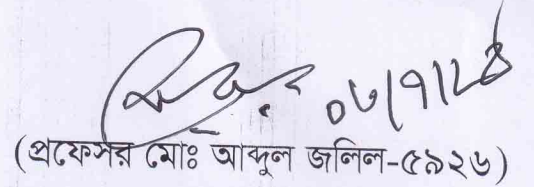 ০৬/৭/২৪
(প্রফেসর মোঃ আব্দুল জলিল-৫৯২৬)